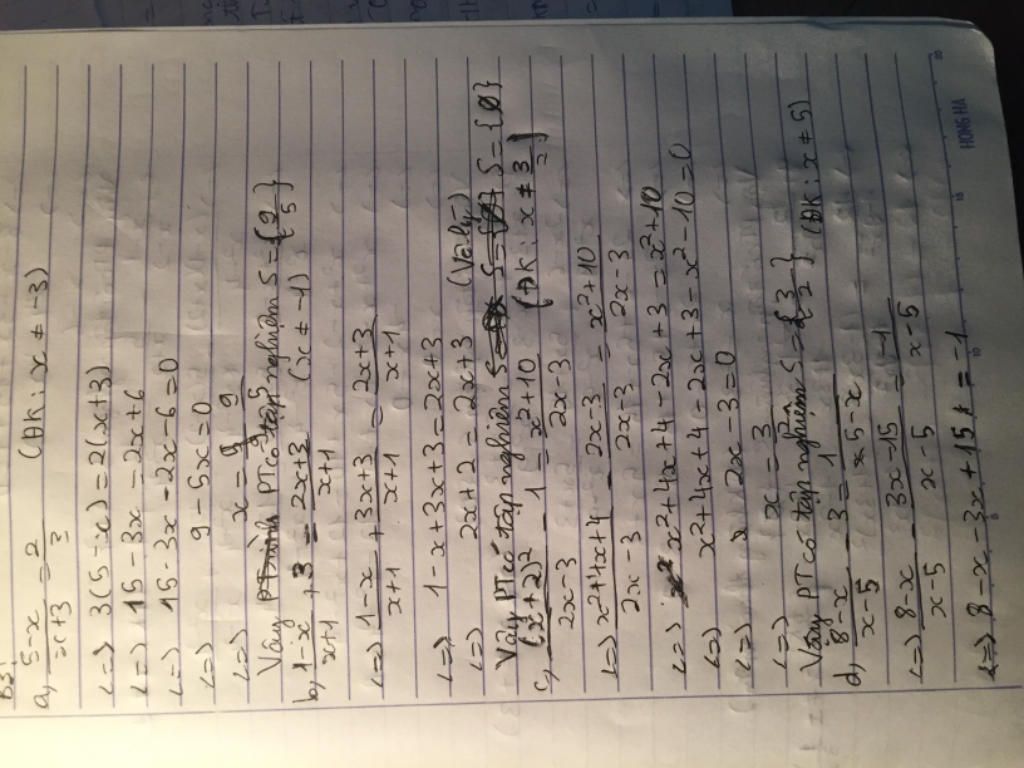 B3:
a, 5-x/x+3 = 2/3 (ĐK: x ≠ -3)
<=> 3(5-x) = 2(x+3)
<=> 15-3x = 2x+6
<=> 15-3x-2x-6=0
<=> 9-5x=0
<=> x = 9/5
Vậy PT có tập nghiệm S={9/5}
b, 1-x/x+1 + 3 = 2x+3/x+1 (x ≠ -1)
<=> 1-x/x+1 + 3x+3/x+1 = 2x+3/x+1
<=> 1-x+3x+3=2x+3
<=> 2x+2 = 2x+3 (Vô lý)
Vậy PT có tập nghiệm S={Ø}
c, (x+2)²/2x-3 - 1 = x²+10/2x-3 (ĐK: x ≠ 3/2)
<=> x²+4x+4/2x-3 - 2x-3/2x-3 = x²+10/2x-3
<=> x²+4x+4-2x+3 = x²+10
<=> x²+4x+4-2x+3-x²-10=0
<=> 2x-3=0
<=> x = 3/2
Vậy PT có tập nghiệm S={3/2}
d, 8-x/x-5 - 3 = 1/5-x (ĐK: x ≠ 5)
<=> 8-x/x-5 - 3x-15/x-5 = -1/x-5
<=> 8-x-3x+15 = -1
HONG HA
5
10
15
20